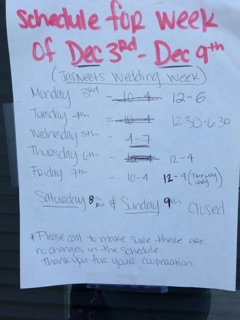 Schedule for week
of Dec 3rd - Dec 9th
(Jasneets Wedding Week)
Monday 3rd - 10-4 12-6
Tuesday 4th - 12:30-6:30
Wednesday 5th - 4-7
Thursday 6th - 12-4
Friday 7th - 10-4 12-4
Saturday 8th & Sunday 9th Closed
*Please call to make sure there are
no changes in the schedule.
Thank you for your cooperation